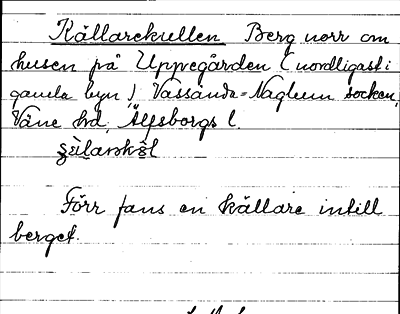 Källarekullen Berg norr om
husen på Uppegården (nordligast i
gamla byn). Vassända-Naglum socken,
Väne hd, Älfsborgs l.
Förr fans en källare intill
berget.